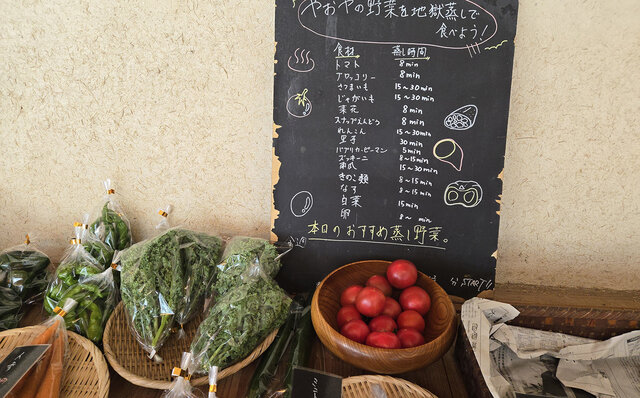 やおやの野菜を地獄蒸しで
食べよう!
食材 蒸し時間
トマト 8 min
ブロッコリー 8 min
さつまいも 15～30 min
じゃがいも 15～30 min
菜花 8 min
スナップえんどう 8 min
れんこん 15～30 min
里子 30 min
パプリカ・ピーマン 5 min
ズッキーニ 8～15 min
南瓜 15～30 min
きのこ類 8～15 min
なす 8～15 min
白菜 15 min
卵 8～ min
本日のおすすめ蒸し野菜。